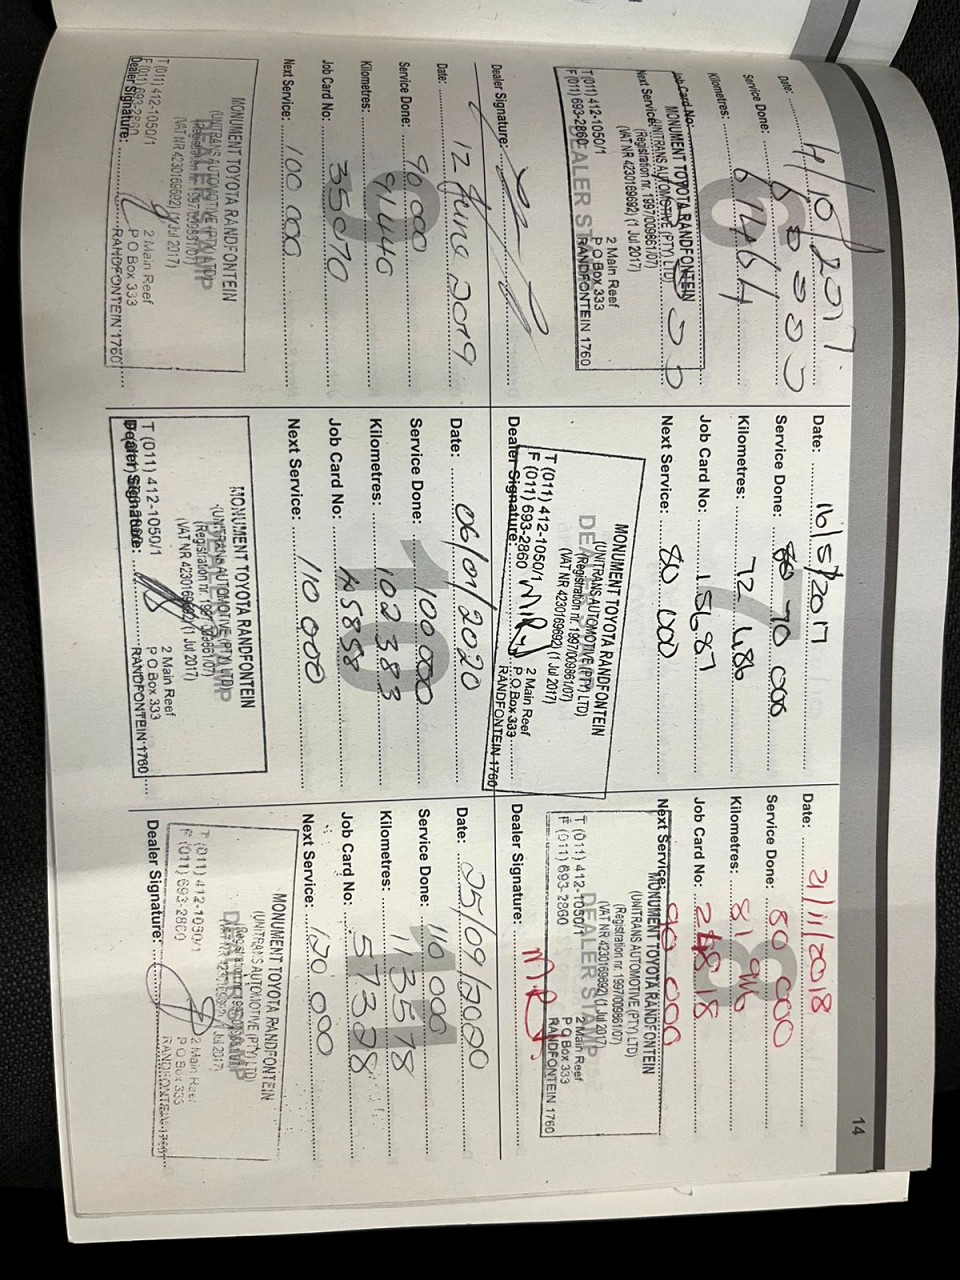 14
6
Date: 4/10/2017
Service Done: 60 000
Kilometres: 61464
Job Card No:
Next Service:
MONUMENT TOYOTA RANDFONTEIN
(UNITRANS AUTOMOTIVE (PTY) LTD)
(Registration nr. 1997/009861/07)
(VAT NR 4230169692) (1 Jul 2017)
DEALER STAMP
T (011) 412-1050/1
F (011) 693-2860
2 Main Reef
P O Box 333
RANDFONTEIN 1760
Dealer Signature:
7
Date: 16/5/2017
Service Done: 70 000
Kilometres: 72 486
Job Card No: 15687
Next Service: 80 000
MONUMENT TOYOTA RANDFONTEIN
(UNITRANS AUTOMOTIVE (PTY) LTD)
(Registration nr. 1997/009861/07)
(VAT NR 4230169692) (1 Jul 2017)
T (011) 412-1050/1
F (011) 693-2860
2 Main Reef
P O Box 333
RANDFONTEIN 1760
Dealer Signature:
8
Date: 21/11/2018
Service Done: 80 000
Kilometres: 81 946
Job Card No: 24818
Next Service: 90 000
MONUMENT TOYOTA RANDFONTEIN
(UNITRANS AUTOMOTIVE (PTY) LTD)
(Registration nr. 1997/009861/07)
(VAT NR 4230169692) (1 Jul 2017)
DEALER STAMP
T (011) 412-1050/1
F (011) 693-2860
2 Main Reef
P O Box 333
RANDFONTEIN 1760
Dealer Signature:
9
Date: 12 June 2019
Service Done: 90 000
Kilometres: 91440
Job Card No: 35070
Next Service: 100 000
MONUMENT TOYOTA RANDFONTEIN
(UNITRANS AUTOMOTIVE (PTY) LTD)
(Registration nr. 1997/009861/07)
(VAT NR 4230169692) (1 Jul 2017)
DEALER STAMP
T (011) 412-1050/1
F (011) 693-2860
2 Main Reef
P O Box 333
RANDFONTEIN 1760
Dealer Signature:
10
Date: 06/01/2020
Service Done: 100 000
Kilometres: 102383
Job Card No: 45858
Next Service: 110 000
MONUMENT TOYOTA RANDFONTEIN
(UNITRANS AUTOMOTIVE (PTY) LTD)
(Registration nr. 1997/009861/07)
(VAT NR 4230169692) (1 Jul 2017)
T (011) 412-1050/1
2 Main Reef
P O Box 333
RANDFONTEIN 1760
Dealer Signature:
11
Date: 25/09/2020
Service Done: 110 000
Kilometres: 113578
Job Card No: 57328
Next Service: 120 000
MONUMENT TOYOTA RANDFONTEIN
(UNITRANS AUTOMOTIVE (PTY) LTD)
T (011) 412-1050/1
F (011) 693-2860
2 Main Reef
P O Box 333
RANDFONTEIN 1760
Dealer Signature: